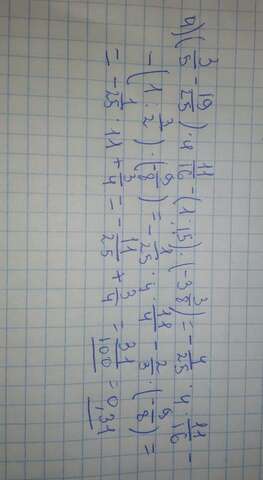 4)(3/5 - 19/25) · 4 · 11/16 - (1 : 1,5) · (-3 · 3/8) = -4/25 · 4 · 11/16 -
- (1 : 3/2) · (-9/8) = -1/25 · 4 · 11/4 - 2/3 · (-9/8) =
= -1/25 · 11 + 3/4 = -11/25 + 3/4 = 31/100 = 0,31